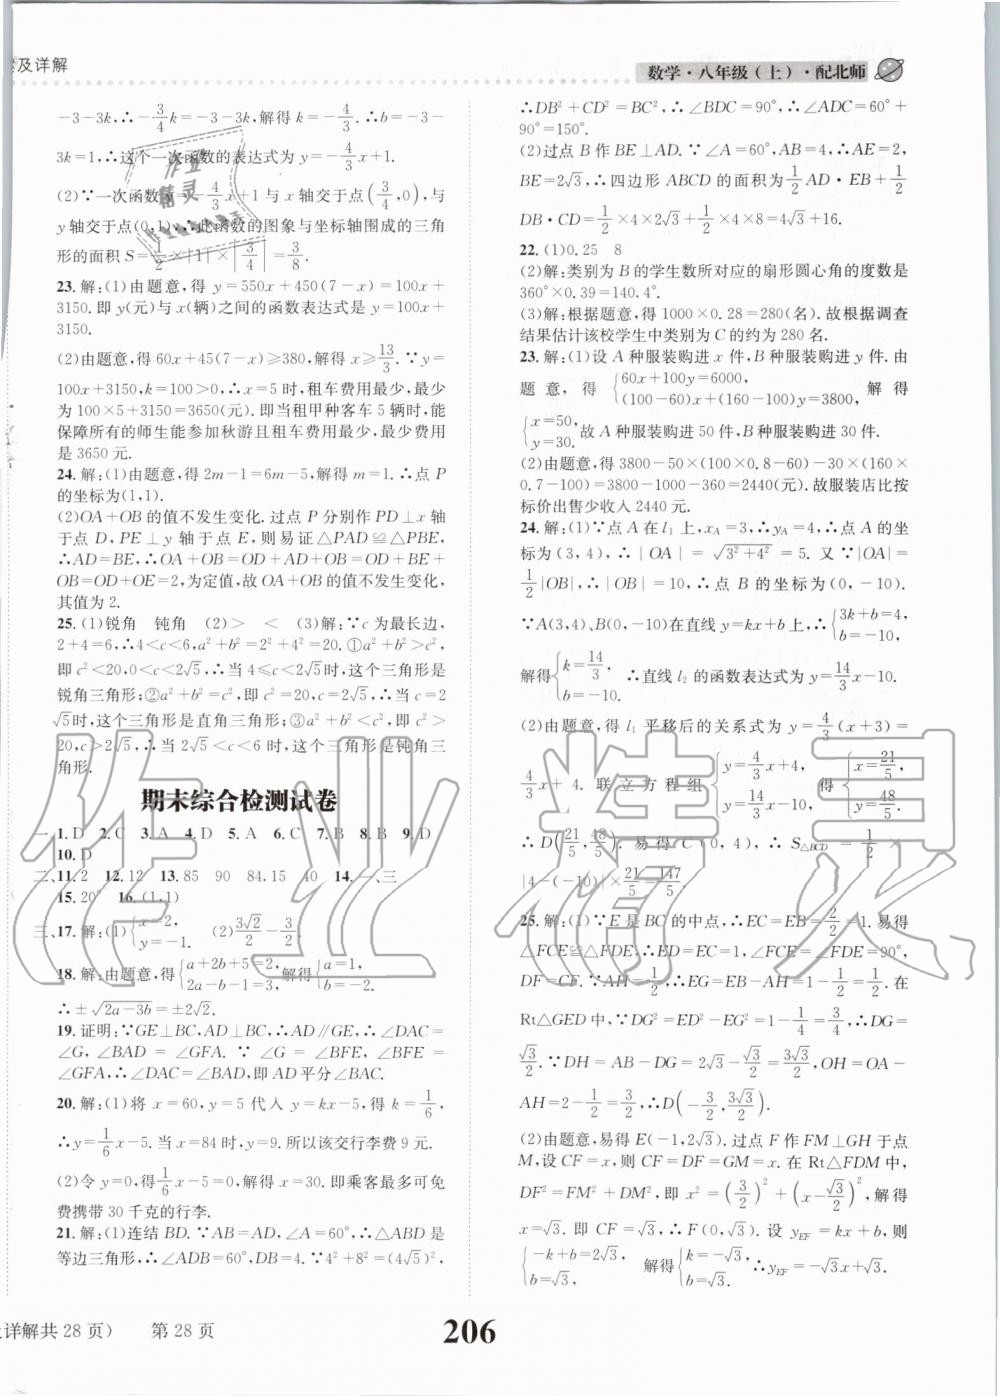 及详解
数学·八年级(上)·配北师
-3-3k,∴-3/4k=-3-3k,解得 k=-4/3.∴b=-3-
3k=1,∴这个一次函数的表达式为 y=-4/3x+1.
(2)∵一次函数 y=-4/3x+1 与 x 轴交于点(3/4,0),与
y 轴交于点(0,1),∴此函数的图象与坐标轴围成的三角
形的面积 S=1/2×|1|×|3/4|=3/8.
23.解:(1)由题意,得 y=550x+450(7-x)=100x+
3150.即 y(元)与 x(辆)之间的函数表达式是 y=100x+
3150.
(2)由题意,得 60x+45(7-x)≥380,解得 x≥13/3.∵y=
100x+3150,k=100>0,∴x=5 时,租车费用最少,最少
为 100×5+3150=3650(元).即当租甲种客车 5 辆时,能
保障所有的师生能参加秋游且租车费用最少,最少费用
是 3650 元.
24.解:(1)由题意,得 2m-1=6m-5,解得 m=1.∴点 P
的坐标为(1,1).
(2)OA+OB 的值不发生变化.过点 P 分别作 PD⊥x 轴
于点 D,PE⊥y 轴于点 E,则易证△PAD≌△PBE,
∴AD=BE,∴OA+OB=OD+AD+OB=OD+BE+
OB=OD+OE=2,为定值,故 OA+OB 的值不发生变化,
其值为 2.
25.(1)锐角 钝角 (2)> < (3)解:∵c 为最长边,
2+4=6,∴4<c<6,a²+b²=2²+4²=20.①a²+b²>c²,
即 c²<20,0<c<2√5,∴当 4≤c<2√5时,这个三角形是
锐角三角形;②a²+b²=c²,即 c²=20,c=2√5,∴当 c=2
√5时,这个三角形是直角三角形;③a²+b²<c²,即 c²>
20,c>2√5,∴当 2√5<c<6 时,这个三角形是钝角三
角形.
期末综合检测试卷
一、1.D 2.C 3.A 4.D 5.A 6.C 7.B 8.B 9.D
10.D
二、11.2 12.12 13.85 90 84.15 40 14.一、三
15.20° 16.(1,1)
三、17.解:(1){x=2, y=-1. (2)3√2/2-3/2.
18.解:由题意,得{a+2b+5=2, 2a-b+1=3,解得{a=1, b=-2.
∴±√2a-3b=±2√2.
19.证明:∵GE⊥BC,AD⊥BC,∴AD∥GE,∴∠DAC=
∠G,∠BAD=∠GFA.∵∠G=∠BFE,∠BFE=
∠GFA,∴∠DAC=∠BAD,即 AD平分∠BAC.
20.解:(1)将 x=60,y=5 代入 y=kx-5,得 k=1/6,
∴y=1/6x-5.当 x=84 时,y=9.所以该交行李费 9 元.
(2)令 y=0,得1/6x-5=0,解得 x=30.即乘客最多可免
费携带 30 千克的行李.
21.解:(1)连结 BD.∵AB=AD,∠A=60°,∴△ABD 是
等边三角形,∴∠ADB=60°,DB=4.∵4²+8²=(4√5)²,
∴DB²+CD²=BC²,∴∠BDC=90°,∴∠ADC=60°+
90°=150°.
(2)过点 B 作 BE⊥AD.∵∠A=60°,AB=4,∴AE=2,
BE=2√3,∴四边形 ABCD 的面积为1/2AD·EB+1/2
DB·CD=1/2×4×2√3+1/2×4×8=4√3+16.
22.(1)0.25 8
(2)解:类别为 B 的学生数所对应的扇形圆心角的度数是
360°×0.39=140.4°.
(3)解:根据题意,得 1000×0.28=280(名).故根据调查
结果估计该校学生中类别为 C 的约为 280 名.
23.解:(1)设 A 种服装购进 x 件,B 种服装购进 y 件.由
题意,得{60x+100y=6000, (100-60)x+(160-100)y=3800, 解得
{x=50, y=30.故 A 种服装购进 50 件,B 种服装购进 30 件.
(2)由题意,得 3800-50×(100×0.8-60)-30×(160×
0.7-100)=3800-1000-360=2440(元).故服装店比按
标价出售少收入 2440 元.
24.解:(1)∵点 A 在 l₁ 上,x_A=3,∴y_A=4,∴点 A 的坐
标为(3,4),∴|OA|=√3²+4²=5.又∵|OA|=
1/2|OB|,∴|OB|=10,∴点 B 的坐标为(0,-10).
∵A(3,4)、B(0,-10)在直线 y=kx+b 上,∴{3k+b=4, b=-10,
解得{k=14/3, b=-10. ∴直线 l₂ 的函数表达式为 y=14/3x-10.
(2)由题意,得 l₁ 平移后的关系式为 y=4/3(x+3)=
4/3x+4.联立方程组{y=4/3x+4, y=14/3x-10, 得{x=21/5, y=48/5.
∴D(21/5,48/5).易得 C(0,4),∴S△BCD=1/2×
|4-(-10)|×21/5=147/5.
25.解:(1)∵E 是 BC 的中点,∴EC=EB=2/2=1.易得
△FCE≌△FDE,∴ED=EC=1,∠FCE=∠FDE=90°,
DF=CF.∵AH=1/2,∴EG=EB-AH=1-1/2=1/2.在
Rt△GED 中,∵DG²=ED²-EG²=1-1/4=3/4,∴DG=
√3/2.∵DH=AB-DG=2√3-√3/2=3√3/2,OH=OA-
AH=2-1/2=3/2,∴D(-3/2,3√3/2).
(2)由题意,易得 E(-1,2√3).过点 F 作 FM⊥GH 于点
M,设 CF=x,则 CF=DF=GM=x.在 Rt△FDM 中,
DF²=FM²+DM²,即 x²=(3/2)²+(x-√3/2)²,解得
x=√3.即 CF=√3,∴F(0,√3).设 y_EF=kx+b,则
{-k+b=2√3, b=√3, 解得{k=-√3, b=√3, ∴y_EF=-√3x+√3.
详解共 28 页) 第 28 页
206
作业精灵
作业
精灵